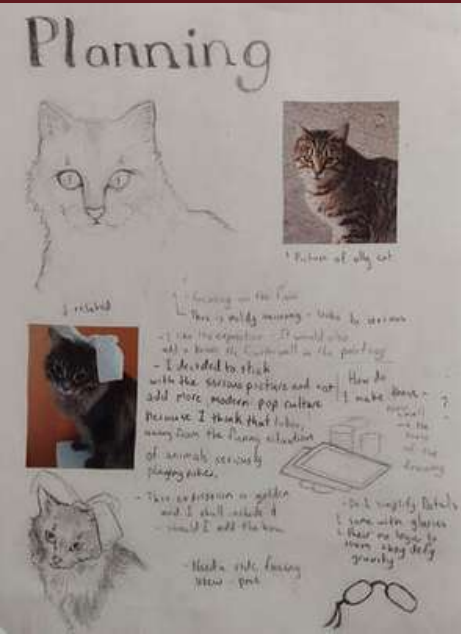 Planning
Picture of ally cat
I related
focusing on the face
This is mildly amusing - looks so serious
- I like the expression - It would also
add a
in the painting
- I decided to stick
with the serious picture and not
add more modern pop culture
because I think that takes
away from the funny situation
of animals seriously
playing poker.
How do
I make these
?
small
the
of the
drawing
- This expression is golden
and I shall include it
- should I add the bow
- Need a side facing
view - pose
- Do I simplify Details
same with glasses
There no logic to
them they defy
gravity